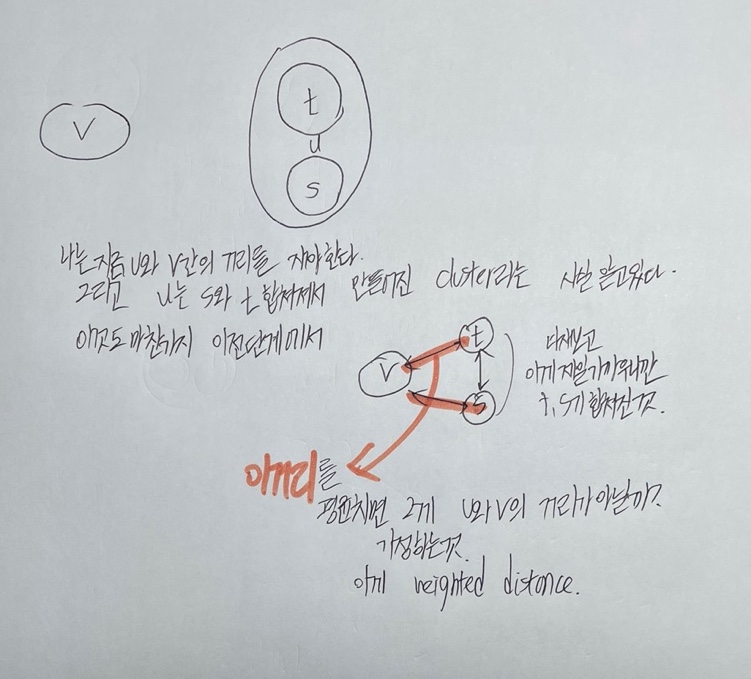 V
t
u
s
나는 지금 U와 V간의 거리를 재야한다.
그리고 u는 s와 t 합쳐져서 만들어진 cluster라는 사실 알고있다.
이것도 마찬가지 이전단계에서
t
V
s
다재보고
이게 제일가까우니깐
t, s가 합쳐진것.
이거리를
평균치면 그게 U와 V의 거리가 아닐까?
가정하는것.
이게 weighted distance.